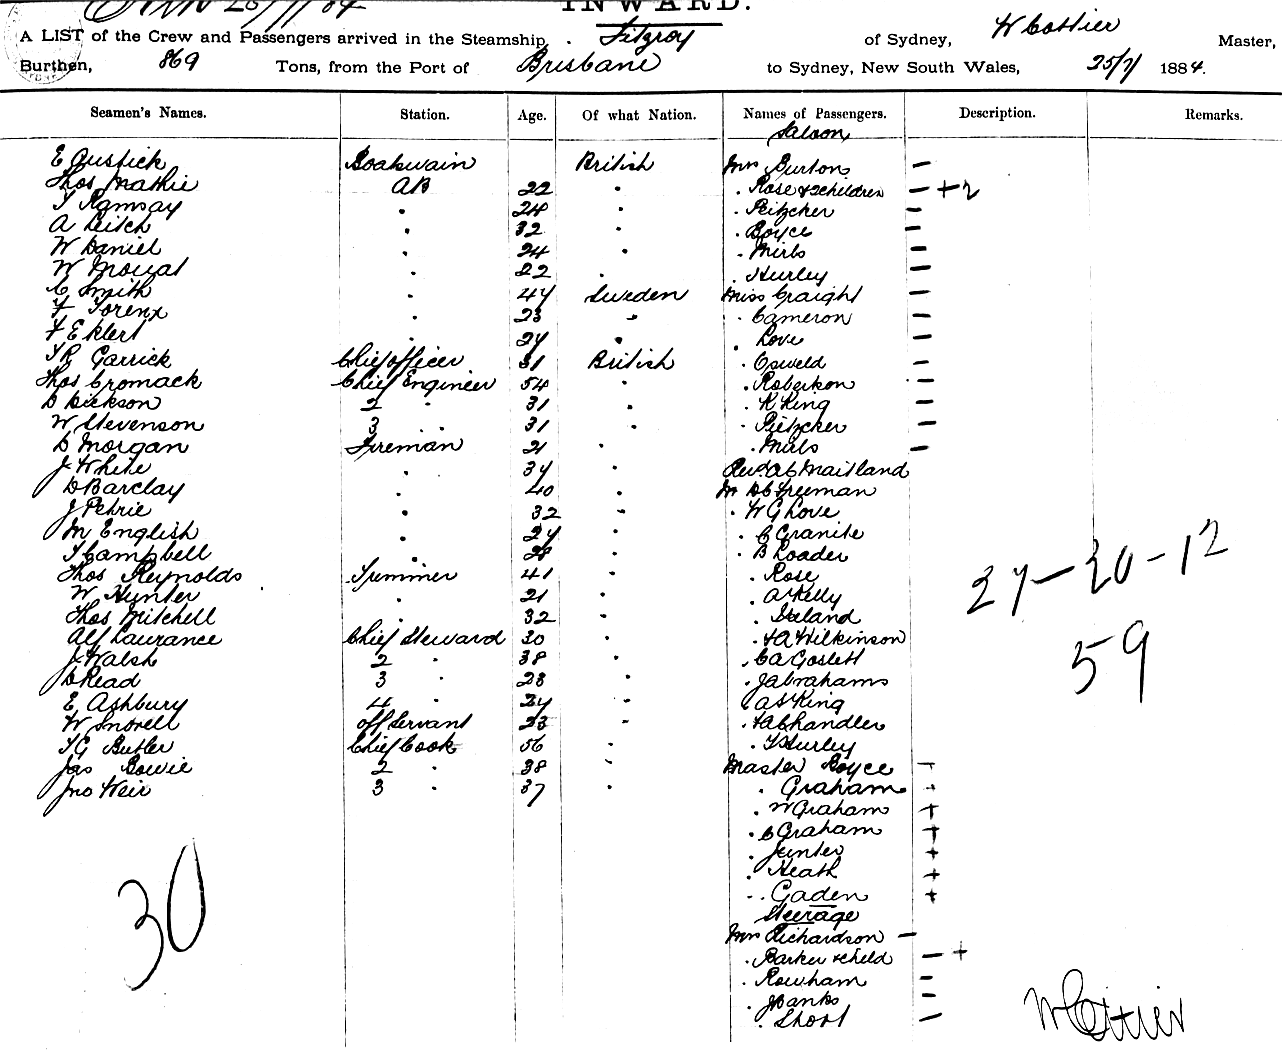 INWARD.
A LIST of the Crew and Passengers arrived in the Steamship Fitzroy of Sydney, W Cottier Master,
Burthen, 869 Tons, from the Port of Brisbane to Sydney, New South Wales, 25/7/ 1884.
Seamen's Names. Station. Age. Of what Nation. Names of Passengers. Description. Remarks.
Saloon
E Austick Boatswain British Mrs Burton —
Thos Mathie AB 22 " . Rose & 2 children — + 2
T Ramsay " 24 " . Peitzcher —
A Leitch " 32 " . Boyce —
W Daniel " 24 " . Mirls —
W Mouat " 22 " . Hurley —
C Smith " 44 Sweden Miss Craight —
F Torenx " 23 " . Cameron —
F Eklert 24 " . Love —
T R Garrick Chief officer 31 British . Osweld —
Thos Cromack Chief Engineer 54 " . Robertson —
D Dickson 2 " 31 " . K King —
W Stevenson 3 " 31 " . Peitzcher —
D Morgan Fireman 21 " . Mirls —
J White " 34 " Revd A C Maitland
D Barclay " 40 " Mr D C Freeman
J Petrie " 32 " . W G Love
M English " 24 " . C Granite
T Campbell " 28 " . B Loader
Thos Reynolds Trimmer 41 " . Rose
W Hunter " 21 " . A Kelly
Thos Mitchell " 32 " . Ireland
Alf Laurance Chief Steward 30 " . H A Wilkinson
J Walsh 2 " 38 " . C A Goslett
D Read 3 " 23 " . J Abrahams
E Ashbury 4 " 24 " . A S King
W Snorell off Servant 23 " . H A Chandler
T G Butler Chief Cook 56 " . T Hurley
Jas Bowie 2 " 38 " Master Boyce +
Jno Weir 3 " 37 " . Graham +
. W Graham +
. C Graham +
. Junter +
. Heath +
. . Gaden +
Steerage
Mrs Richardson —
. Barker & child — +
. Rowham —
. J Banks —
. Short —
27 — 20 — 12
59
30
W Cottier